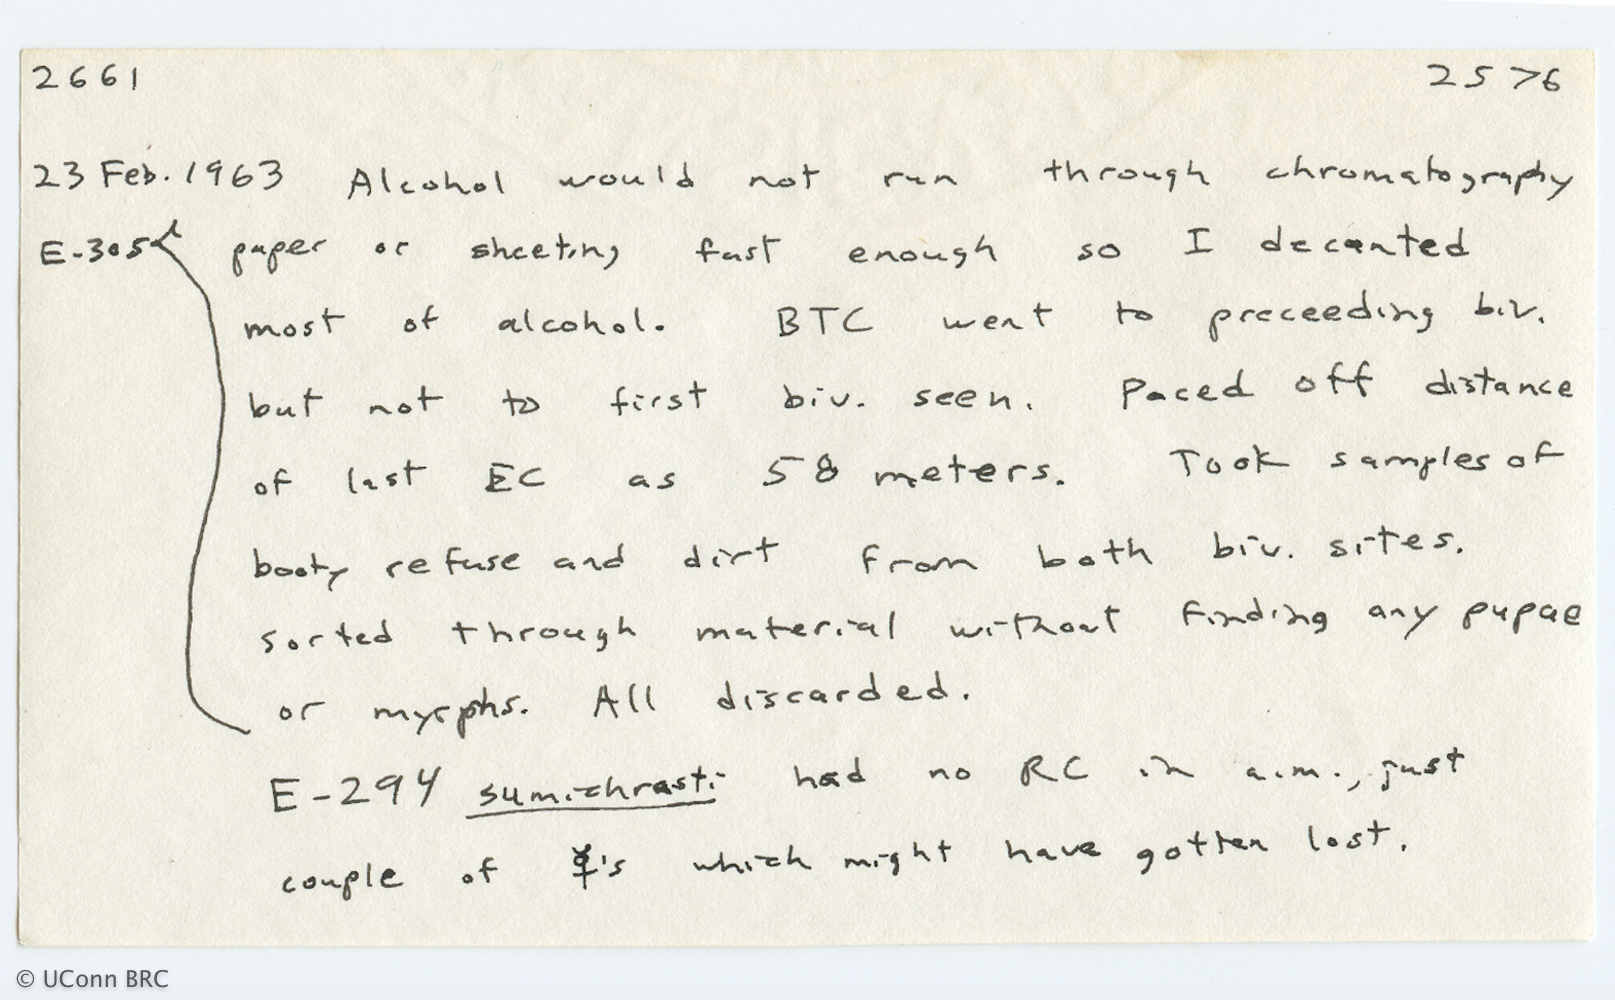 2661 2576
23 Feb. 1963 Alcohol would not run through chromatography
E-305 paper or sheeting fast enough so I decanted
most of alcohol. BTC went to preceeding biv.
but not to first biv. seen. Paced off distance
of last EC as 58 meters. Took samples of
booty refuse and dirt from both biv. sites.
sorted through material without finding any pupae
or myrphs. All discarded.
E-294 sumichrasti had no RC in a.m., just
couple of ☿'s which might have gotten lost.
© UConn BRC